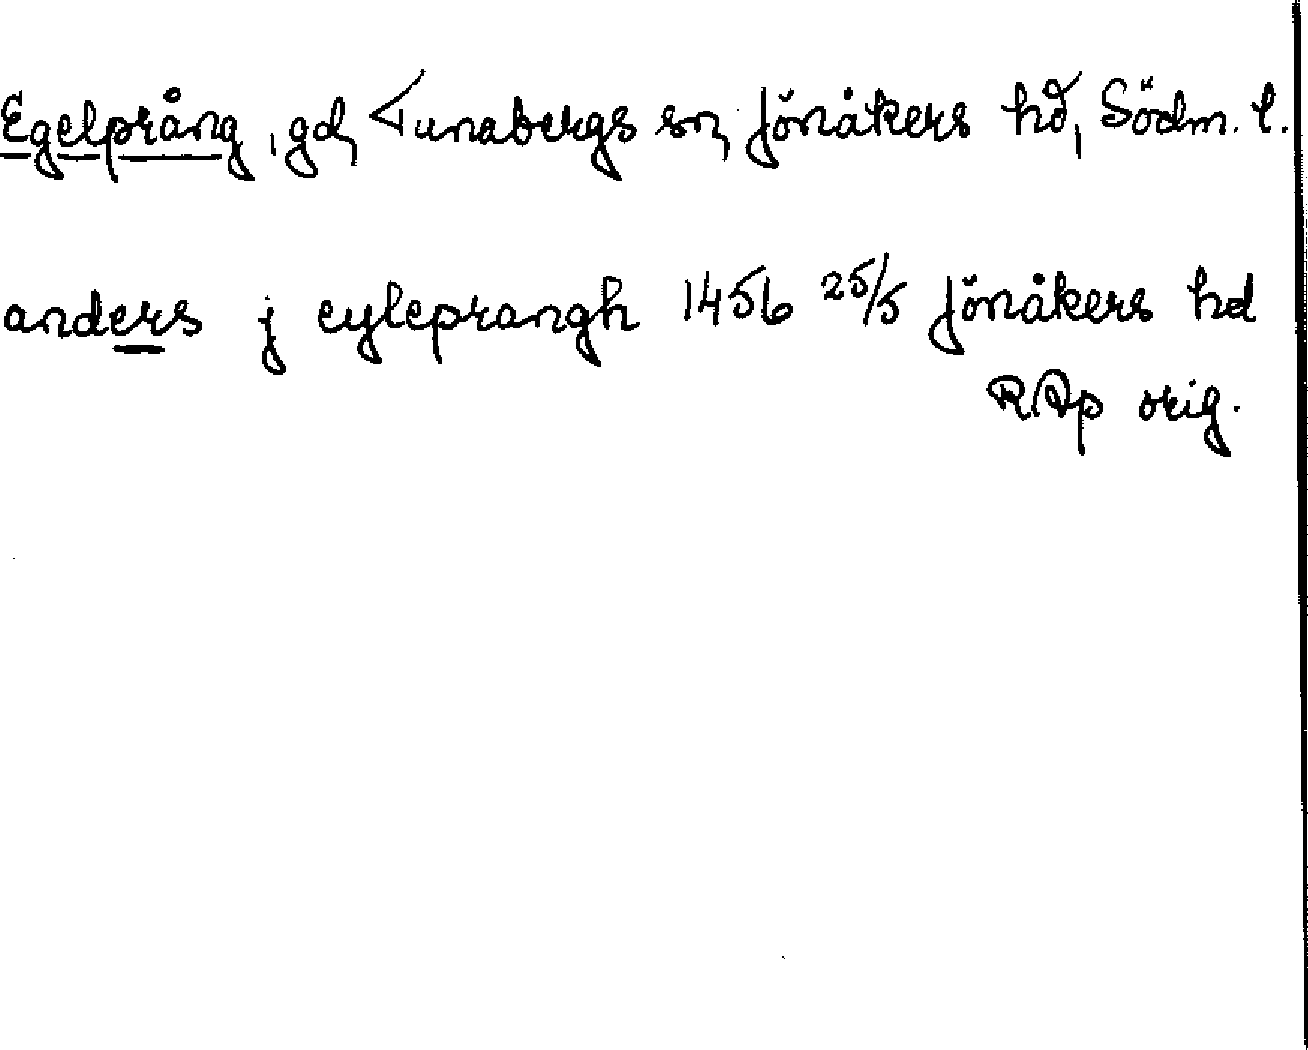 Egelprång, gd, Tunabergs sn, Jönåkers hd, Södm. l.
anders j eyleprangh 1456 25/5 Jönåkers hd
RAp orig.